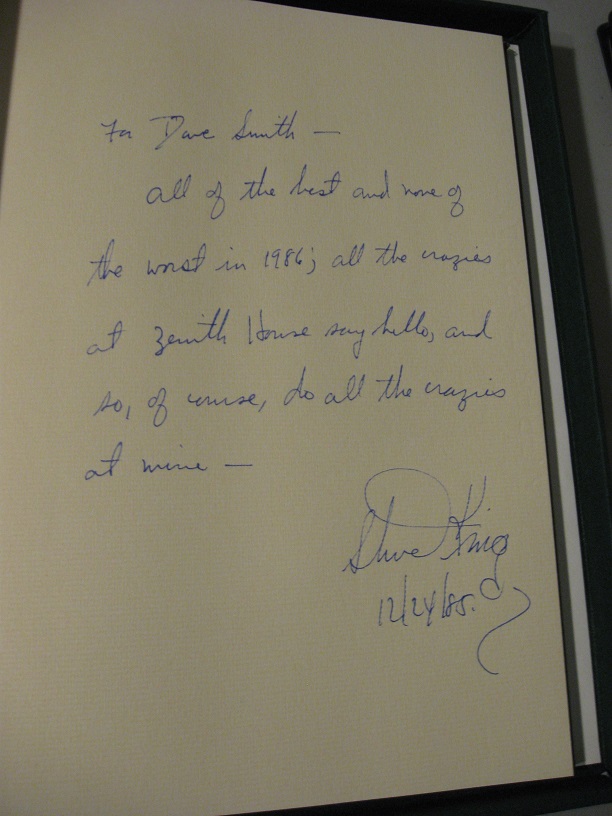 For Dave Smith —
all of the best and none of
the worst in 1986; all the crazies
at Zenith House say hello, and
so, of course, do all the crazies
at mine —
Steve King
12/24/85.